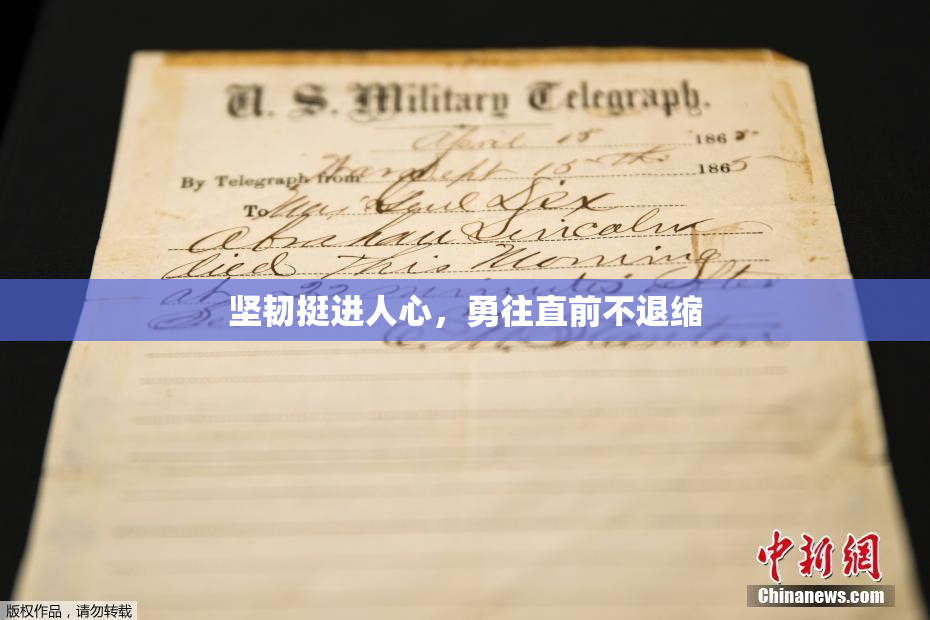 U. S. Military Telegraph.
April 15 1865
By Telegraph from War Dept 15th 1865
To Maj Genl Dix
Abraham Lincoln
died This Morning
at 22 minutes after
坚韧挺进人心，勇往直前不退缩
E. M. Stanton
中新网
Chinanews.com
版权作品，请勿转载